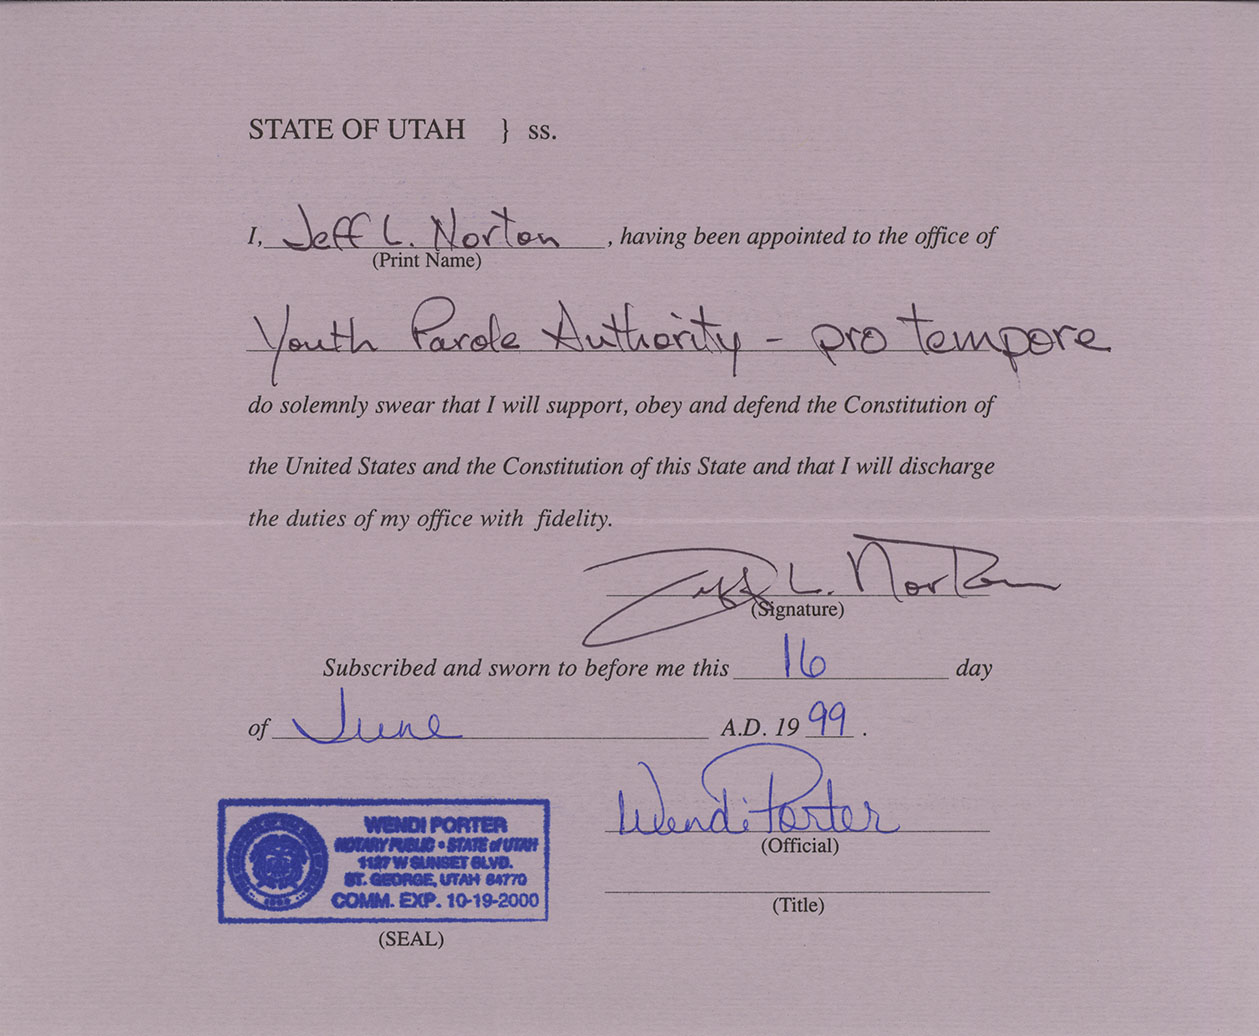 STATE OF UTAH } ss.
I, Jeff L. Norton, having been appointed to the office of
(Print Name)
Youth Parole Authority - pro tempore
do solemnly swear that I will support, obey and defend the Constitution of
the United States and the Constitution of this State and that I will discharge
the duties of my office with fidelity.
Jeff L. Norton
(Signature)
Subscribed and sworn to before me this 16 day
of June A.D. 19 99.
Wendi Porter
(Official)
(Title)
WENDI PORTER
NOTARY PUBLIC • STATE of UTAH
1187 W SUNSET BLVD.
ST. GEORGE, UTAH 84770
COMM. EXP. 10-19-2000
(SEAL)